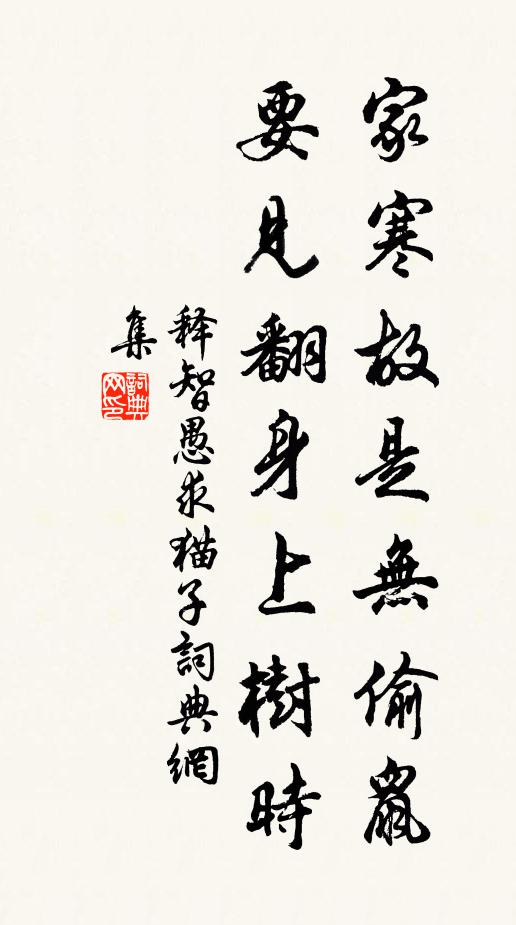 家寒故是無偷鼠
要見翻身上樹時
释智愚求猫子詞典網
集
詞典
网印